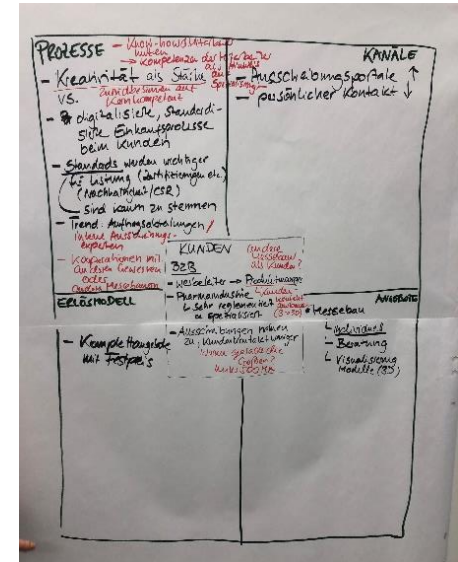 PROZESSE
- Know-how d. Mitarbeiter
nutzen
→ Kompetenzen der Mitarbeiter
- Kreativität als Stärke
VS.
Kernkompetenz
- digitalisierte, standardi-
sierte Einkaufsprozesse
beim Kunden
- Standards werden wichtiger
für Listung (Zertifizierungen etc.)
(Nachhaltigkeit/CSR)
sind kaum zu stemmen
- Trend: Auftragsabteilungen/
interne Ausschreibungs-
experten
- Kooperationen mit
anderen Gewerken
oder
anderen Messebauern
KANÄLE
- Ausschreibungsportale ↑
- persönlicher Kontakt ↓
KUNDEN
andere
Messebauer
als Kunden?
B2B
- Werbeleiter → Produktmanager
- Pharmaindustrie
↳ sehr reglementiert
u. spezialisiert
- Ausschreibungen nehmen
zu, Kundenkontakt weniger
Größen?
ERLÖSMODELL
- Komplettangebote
mit Festpreis
ANGEBOTE
- Messebau
↳ individuell
- Beratung
↳ Visualisierung
Modelle (3D)